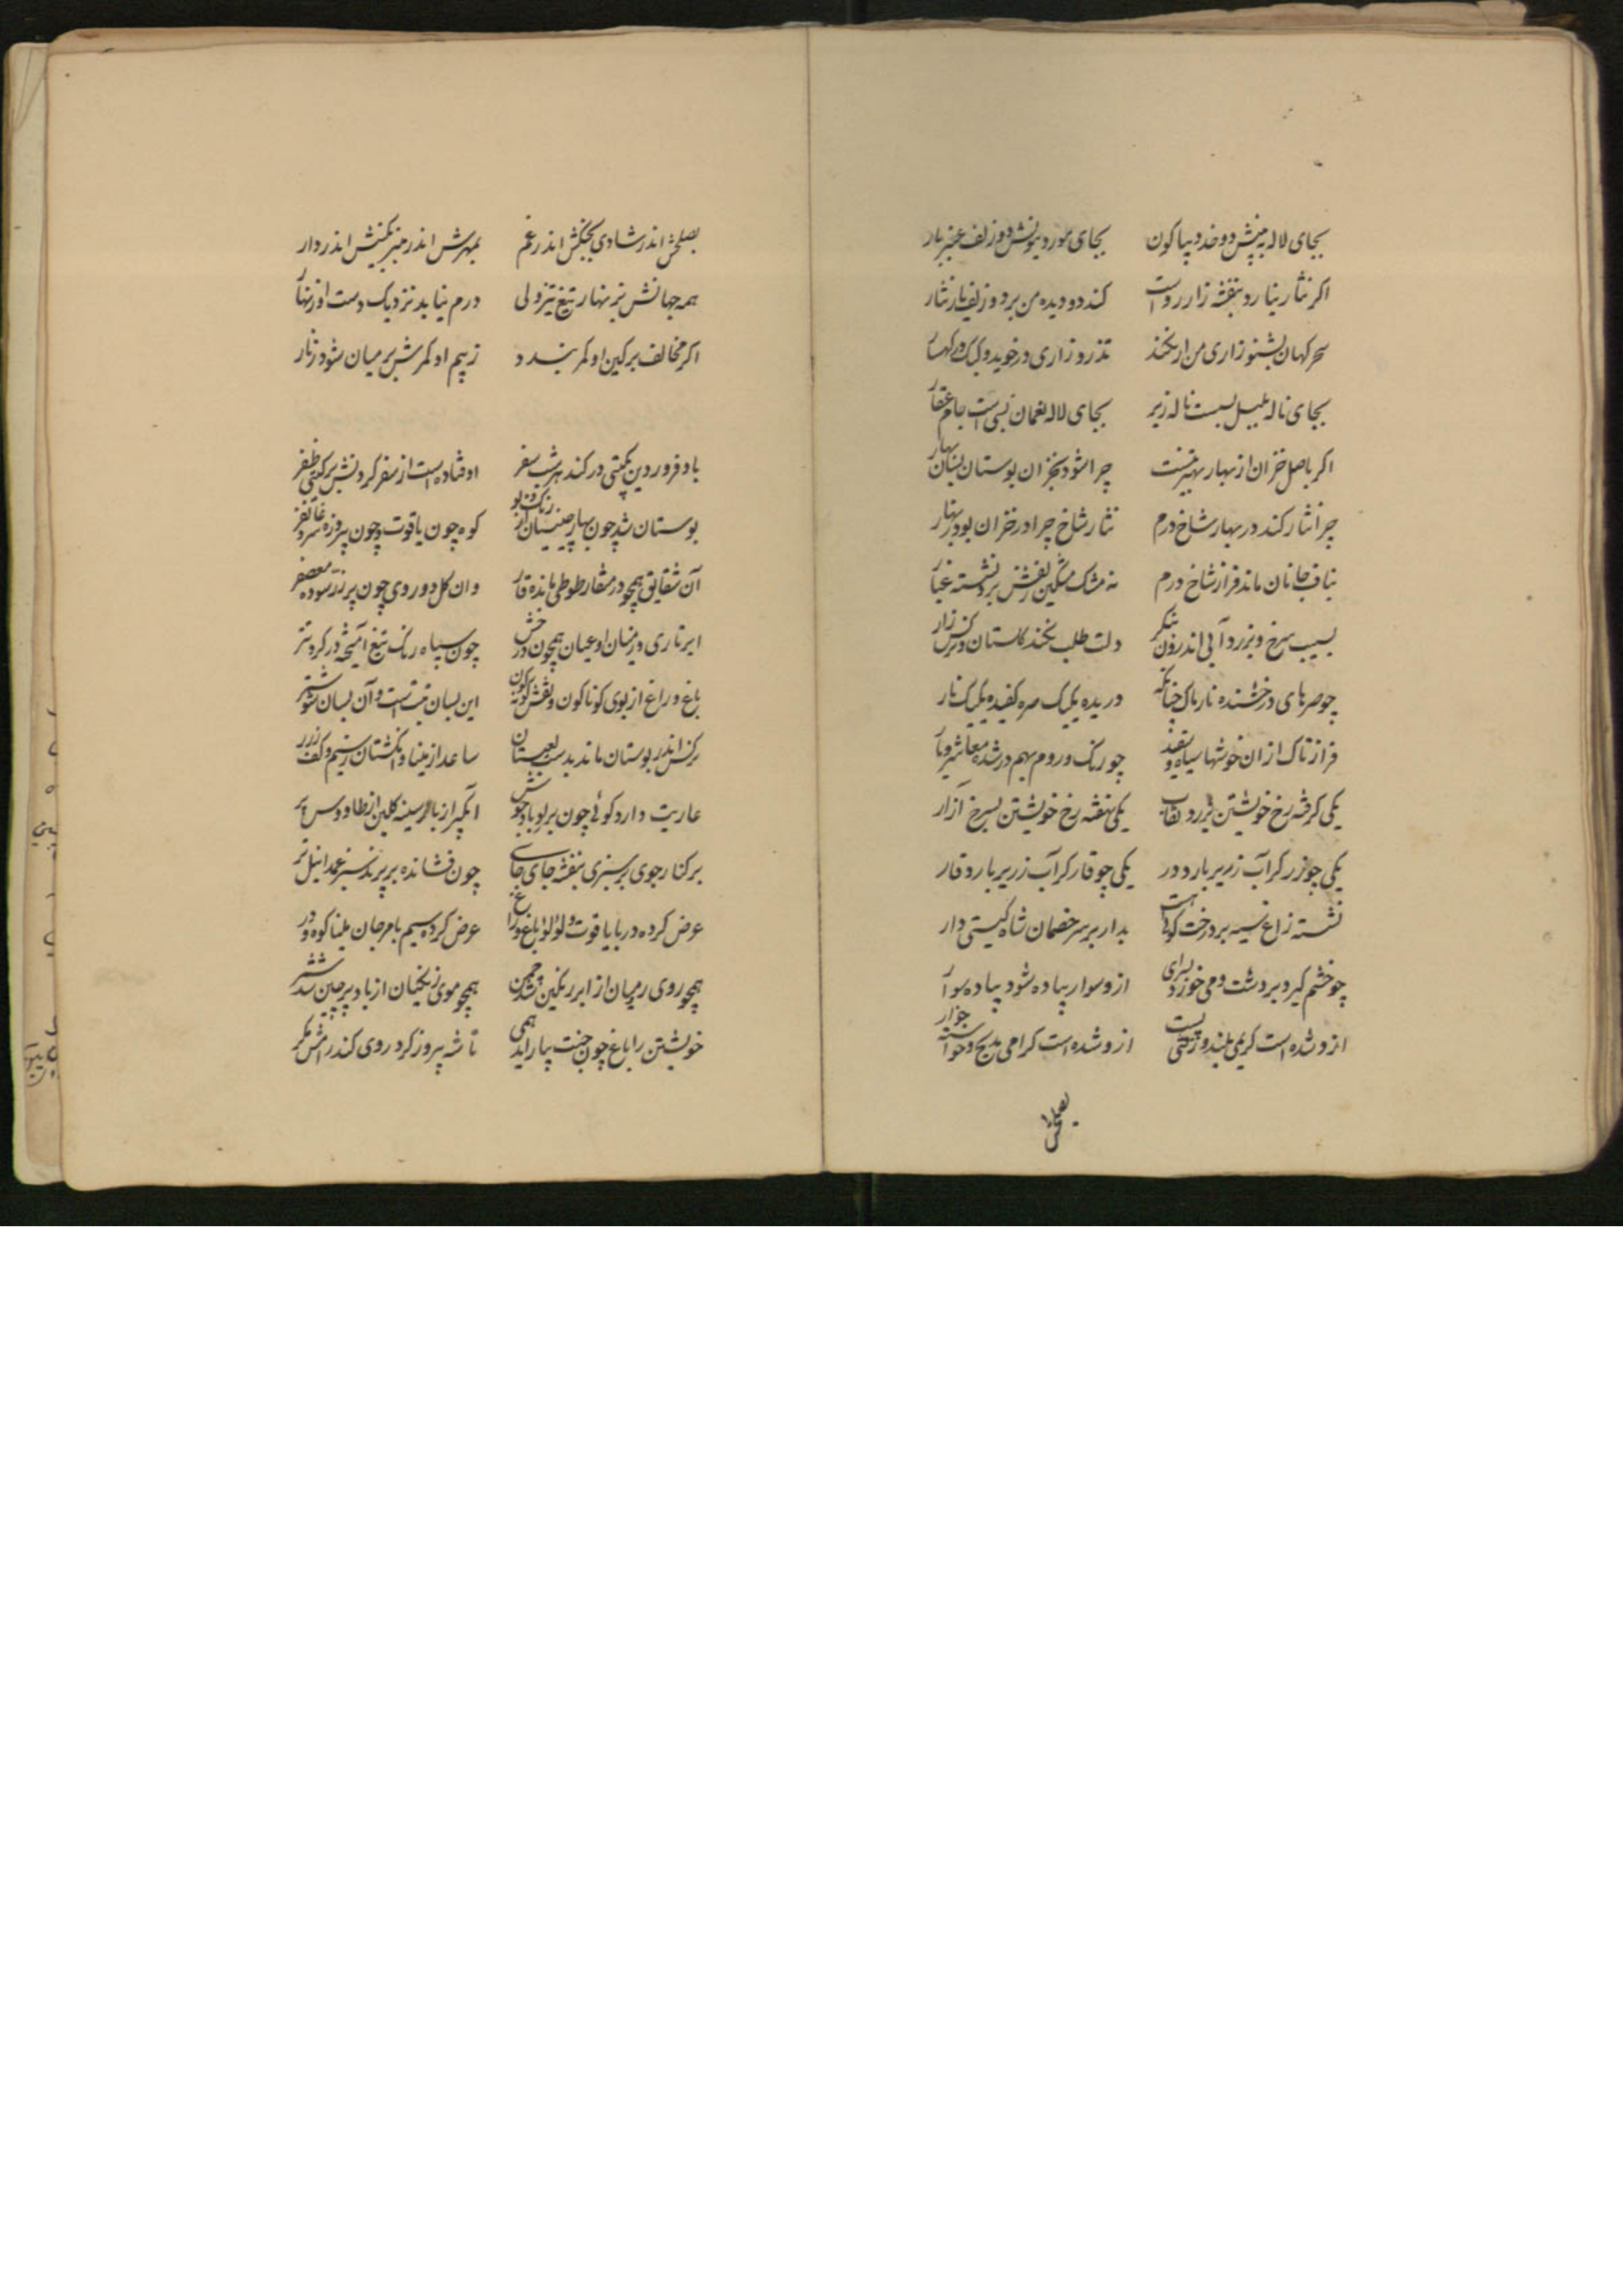 بجای لاله به پیش دو خد دیبا کون بجای مورد بنوش دو زلف عنبر بار
اکر نثار نیارد بنفشه زار رواست کند دو دیده من بر دو زلف یار نثار
سحر کهان بشنو زاری من ار نکند تذرو زاری در خوید و کبک در کهسار
بجای ناله بلبل بسست ناله زیر بجای لاله نعمان بسی است جام عقار
اکر باصل خزان از بهار بهتر نیست چرا شود بخزان بوستان بسان بهار
چرا نثار کند در بهار شاخ درم نثار شاخ چرا در خزان بود دینار
بناف جانان ماند فراز شاخ درم نه مشک مشکین نقش برو نشسته غبار
بسیب سرخ و بزرد آبی اندرون بنکر دلت طلب نکند کلستان و نرکس زار
چو صرهای درخشنده نار پاک چنانکه دریده یکیک صره کفیده یکیک نار
فراز تاک ازان خوشها سیاه و سفید چو زنک و روم بهم در شده
یکی کرفته رخ خویشتن بزرد نقاب یکی نهفته رخ خویشتن بسرخ آزار
یکی چو زر کر آب زریر بارد در یکی چو قار کر آب زریر بارد قار
نشسته زاغ سیه بر درخت کوئی هست بدار بر سر خصمان شاه کیستی دار
چو خشم کیرد بر دشت و می خورد بسرای ازو سوار پیاده شود پیاده سوار
ازو شده است کریمی بلند و زفتی پست ازو شده است کرامی مدیح و خواسته خوار
بصلحش
بصلحش اندر شادی بجنکش اندر غم بمهرش اندر منبر بکینش اندر دار
همه جهانش بزنهار تیغ تیز ولی درم نیابد نزدیک دست او زنهار
اکر مخالف بر کین او کمر بندد ز بیم او کمرش بر میان شود زنار
باد فروردین بکیتی در کند هر شب سفر اوفتاده است از سفر کردنش بر کیتی ظفر
بوستان شد چون بهار چینیان از رنک و بو کوه چون یاقوت و چون پیروزه شد غاتفر
آن شقایق همچو در منقار طوطی مانده قار وان کل دو روی چون بر زر سوده معصفر
ابر تاری در میان او عیان همچون درخش چون سپاه زنک تیغ آمیخته در کر و تر
باغ و راغ از بوی کوناکون و نقش کونه کون این بسان تبت است و آن بسان شوشتر
نرکس اندر بوستان ماند بدست لعبتان ساعد از مینا و انکشتان ز سیم و کف ز زر
عاریت دارد کوئی چون برو باد جوش آبکیر از باز سینه کلبن از طاووس پر
بر کنار جوی بر سبزی بنفشه جای جای چون فشانده بر پرند سبز عمدا نیل تر
عرض کرده در با یاقوت و لؤلؤ باغ و راغ عرض کرده سیم با مرجان و مینا کوه و در
همچو روی رومیان از ابر رنکین شد چمن همچو موی زنکیان از باد پر چین شد شمر
خویشتن را باغ چون جنت بیاراید همی تا شه پیروز کر روزی کند رامش مکر